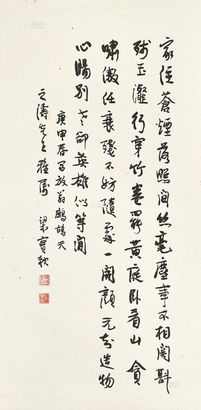 家住蒼煙落照間絲毫塵事不相關斟
殘玉瀣行穿竹卷罷黃庭臥看山貪
嘯傲任衰殘不妨隨處一開顏元知造物
心腸別老卻英雄似等閒
庚申春寫放翁鷓鴣天
之濤先生雅屬 梁實秋